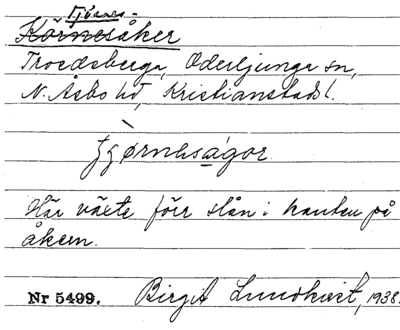 Tjörnes-
Körnesåker
Troedsberga, Oderljunga sn,
N. Åsbo hd, Kristianstads l.
tjǿrnesågor
Här växte förr slån i kanten på
åkern.
Nr 5499. Birgit Lundkvist, 1938.